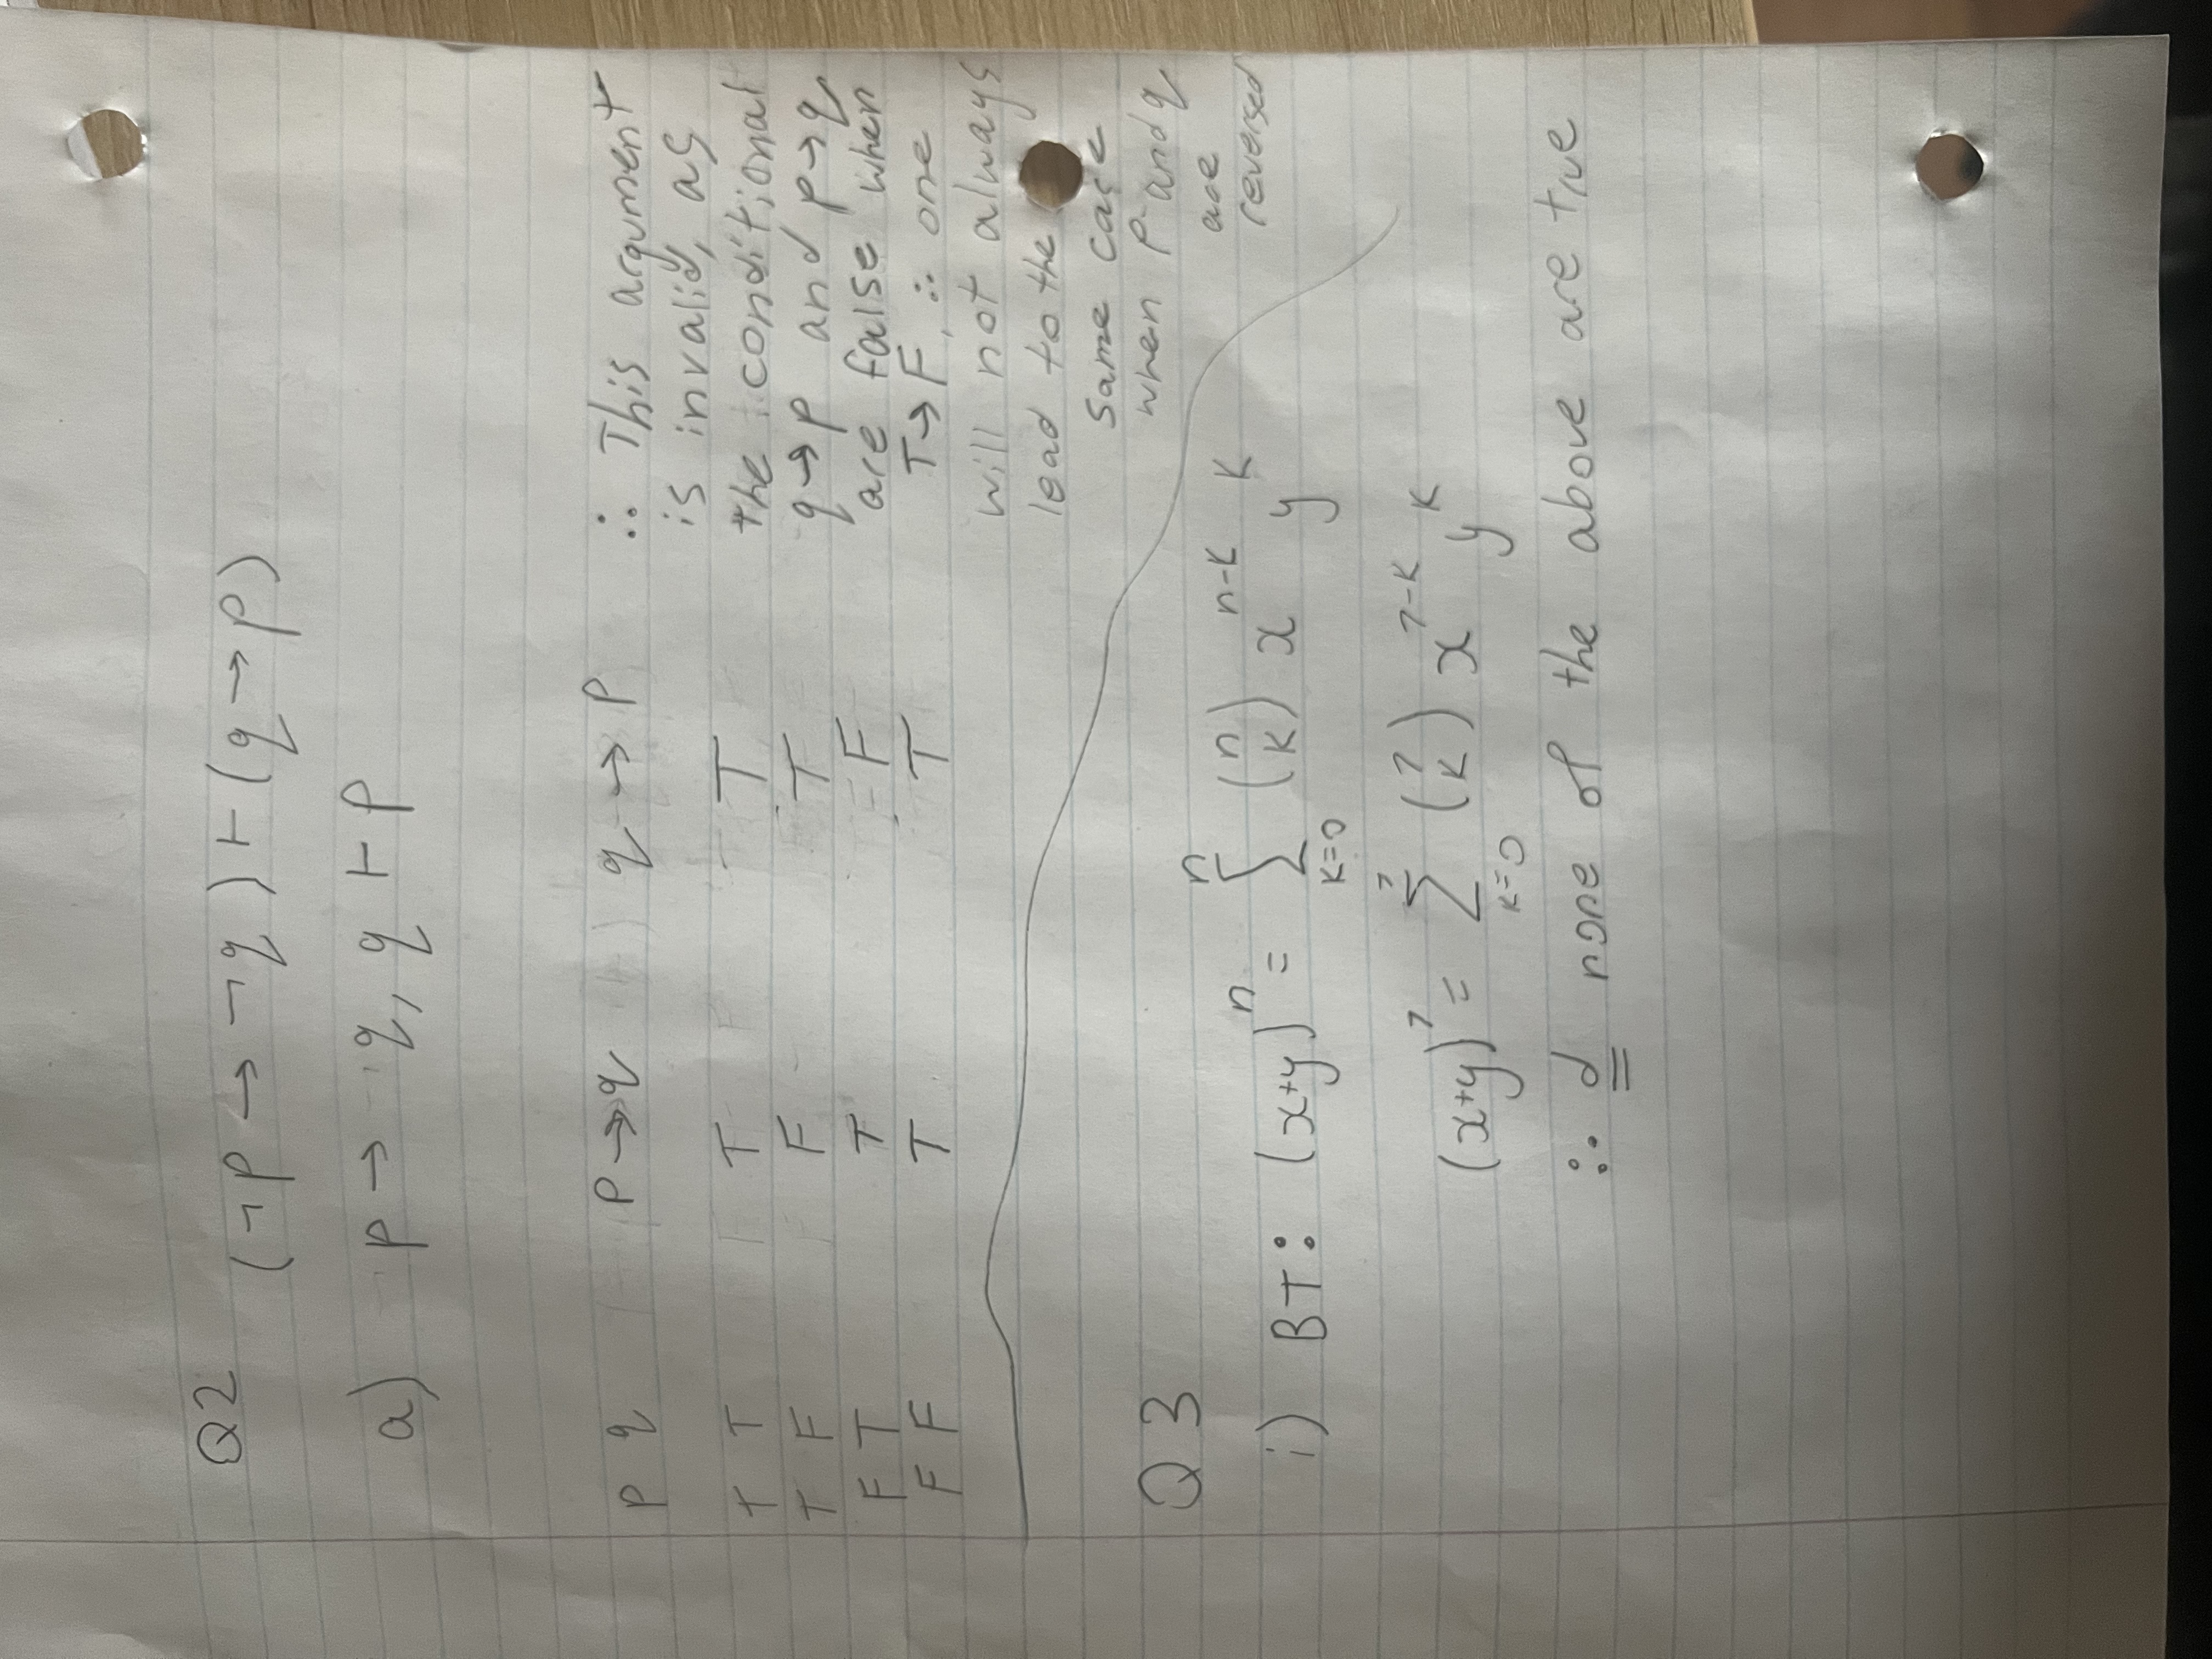 Q2 (¬p → ¬q) ⊢ (q → p)
a) p → q, q ⊢ p
p q p → q q → p
T T T T
T F F T
F T T F
F F T T
∴ This argument
is invalid, as
the conditional
q → p and p → q
are false when
T → F, ∴ one
will not always
lead to the
same case
when p and q
are
reversed
Q3
i) BT: (x+y)^n = ∑_{k=0}^{n} (n k) x^{n-k} y^k
(x+y)^7 = ∑_{k=0}^{7} (7 k) x^{7-k} y^k
∴ d none of the above are true